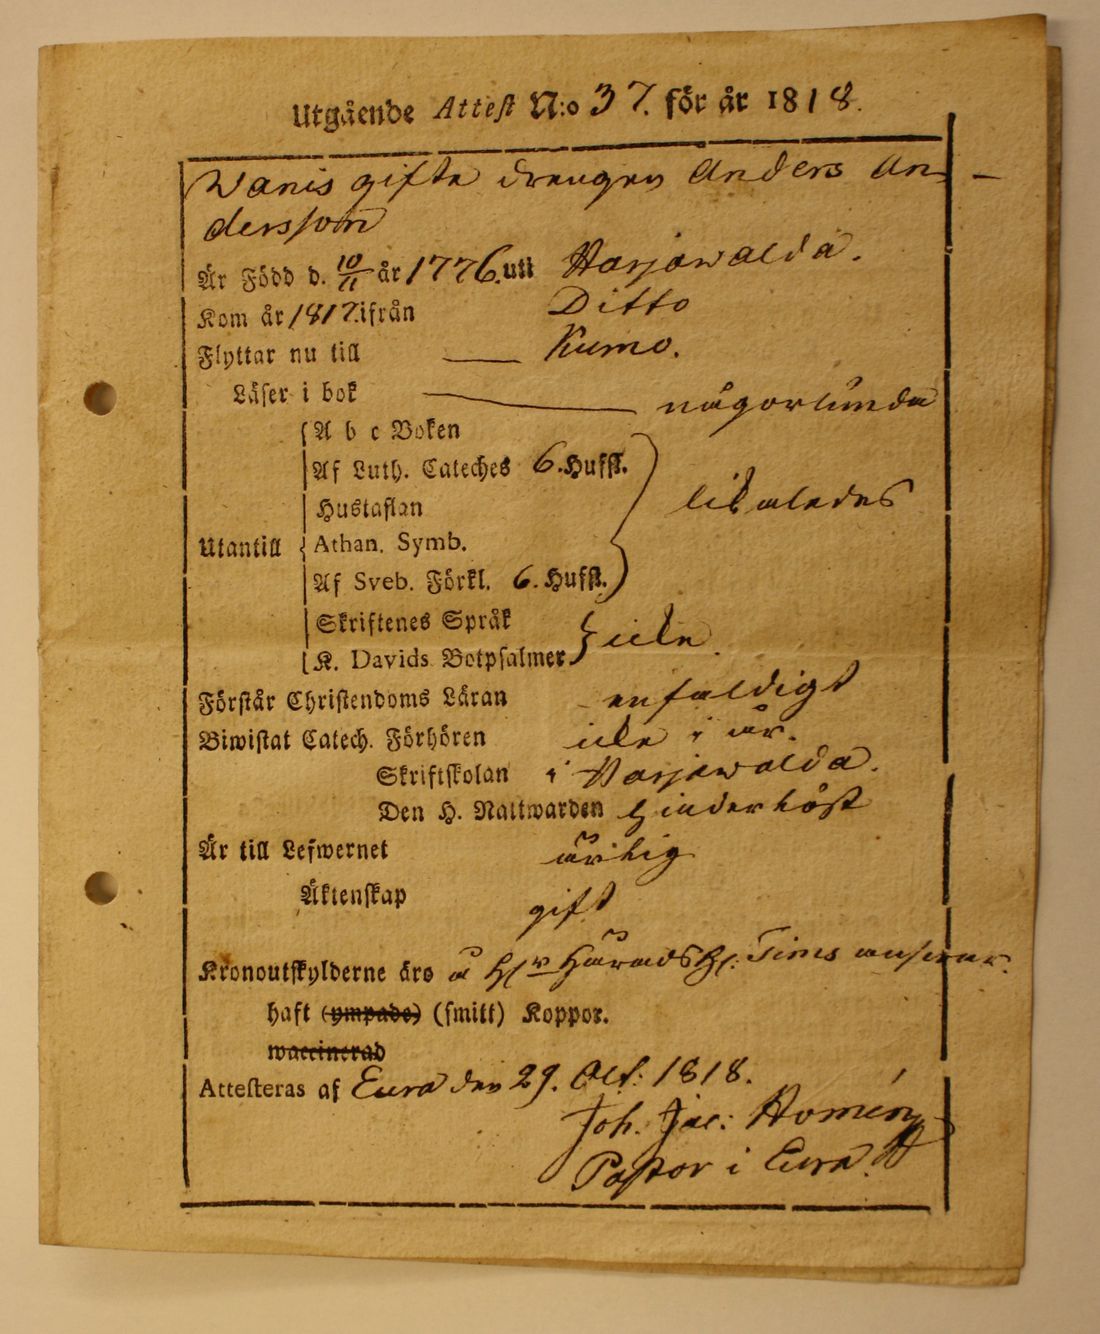 Utgående Attest N:o 37. för år 1818.
Wanis gifte drengen Anders An-
dersson
Är Född d. 10/11 år 1776. uti Harjawalda.
Kom år 1817. ifrån Ditto
Flyttar nu till — Kumo.
Läser i bok — någorlunda
A b c Boken
Af Luth. Cateches 6. Hufst.
Hustaflan likaledes
Utantill Athan. Symb.
Af Sveb. Förkl. 6. Hufst.
Skriftenes Språk
K. Davids Botpsalmer icke.
Förstår Christendoms Läran enfaldigt
Biwistat Catech. Förhören icke i år.
Skriftskolan i Harjawalda.
Den H. Nattwarden höst
Är till Lefwernet ärlig
Äktenskap gift
Kronoutskylderne äro å Hr Härads Tims answar.
haft (ympade) (smitt) Koppor.
waccinerad
Attesteras af Eura den 29. Oct: 1818.
Joh. Jac: Homén
Pastor i Eura.